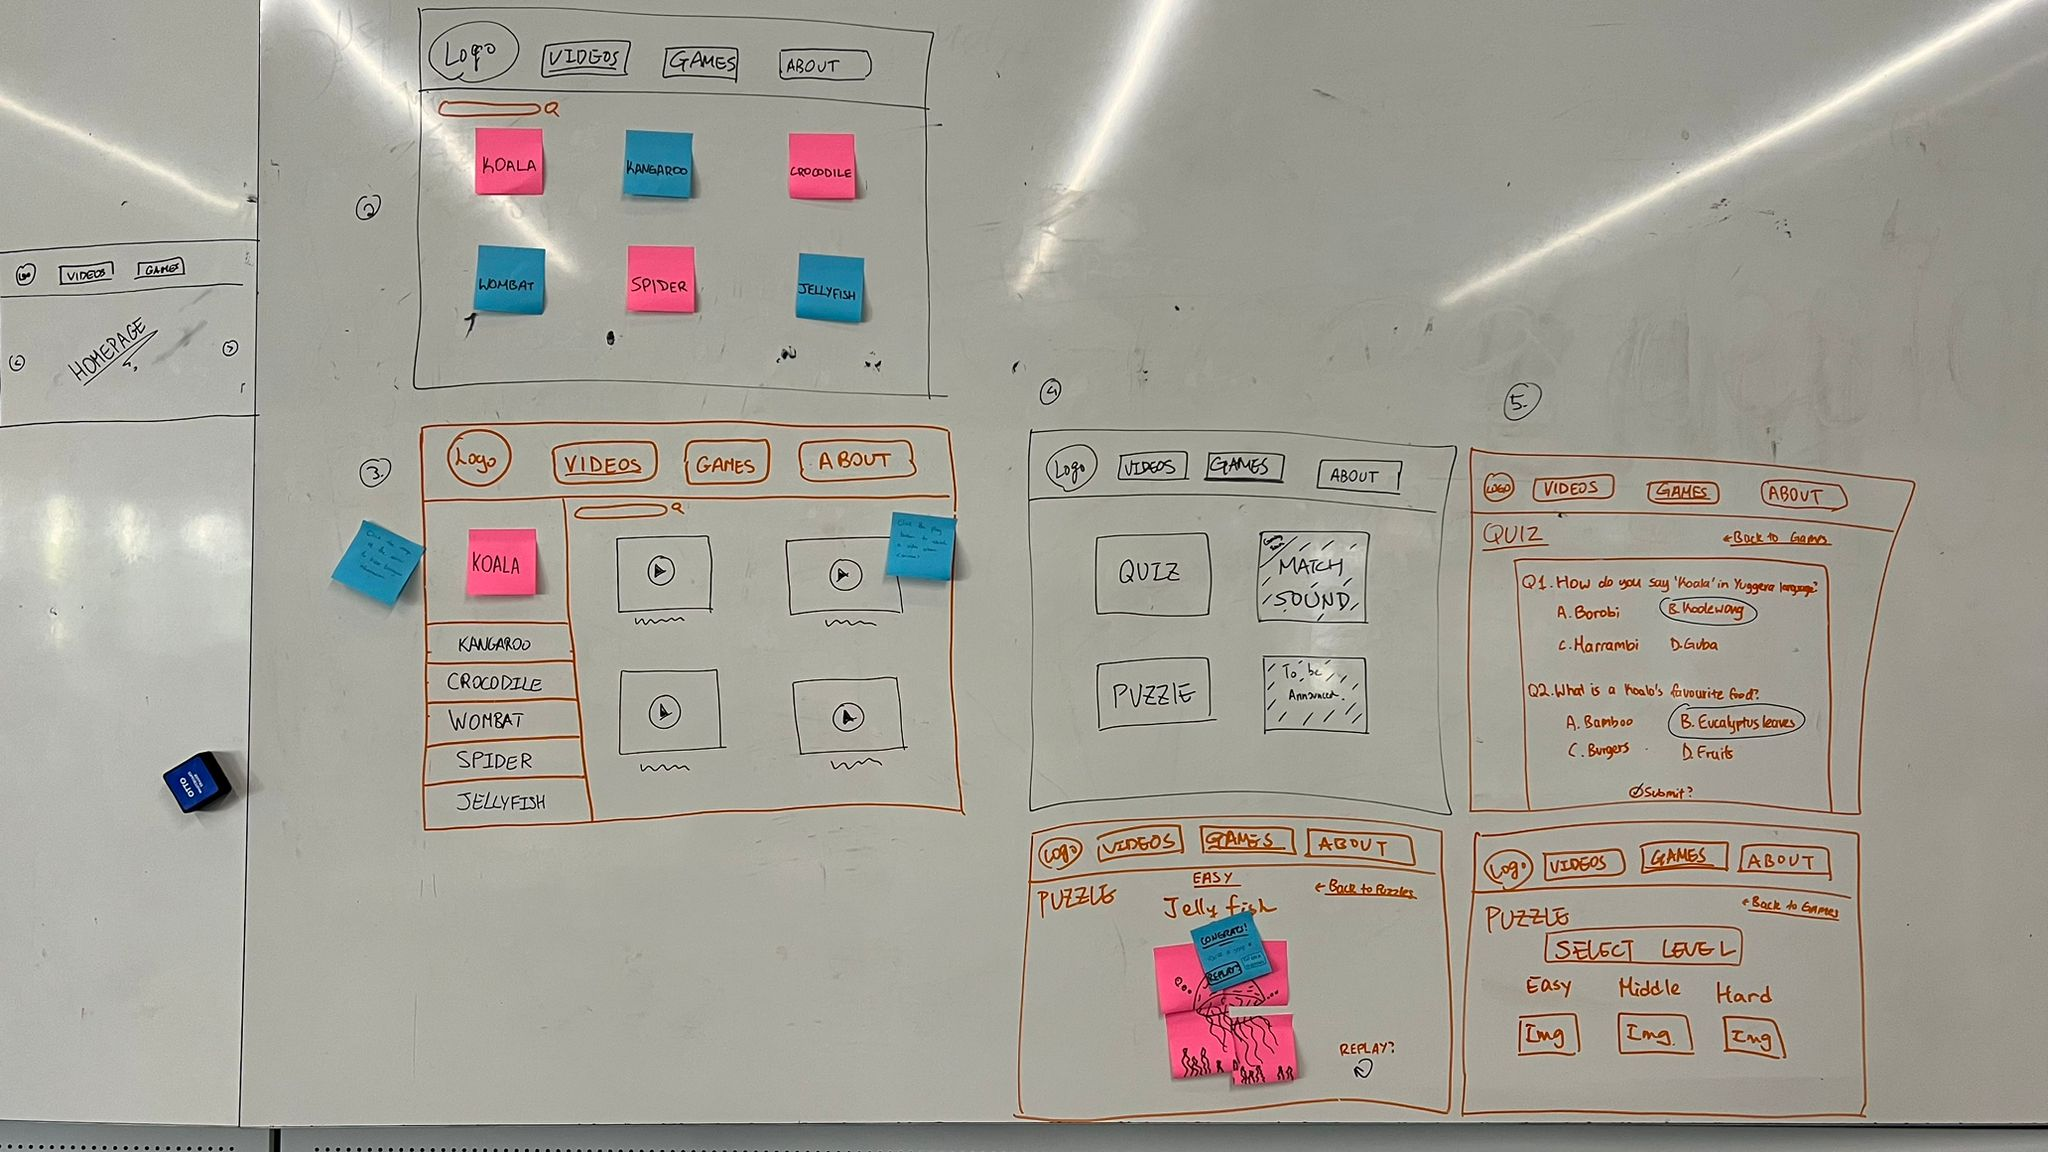 Logo
VIDEOS
GAMES
HOMEPAGE
2
Logo
VIDEOS
GAMES
ABOUT
KOALA
KANGAROO
CROCODILE
WOMBAT
SPIDER
JELLYFISH
3.
Logo
VIDEOS
GAMES
ABOUT
KOALA
KANGAROO
CROCODILE
WOMBAT
SPIDER
JELLYFISH
Click the play
button to watch
a video
OTTO
4
Logo
VIDEOS
GAMES
ABOUT
QUIZ
Coming
Soon
MATCH
SOUND
PUZZLE
To be
Announced
5.
LOGO
VIDEOS
GAMES
ABOUT
QUIZ
←Back to Games
Q1. How do you say 'Koala' in Yuggera language?
A. Borobi
B. Koolewong
C. Marrambi
D. Guba
Q2. What is a Koala's favourite food?
A. Bamboo
B. Eucalyptus leaves
C. Burgers
D. Fruits
Submit?
Logo
VIDEOS
GAMES
ABOUT
PUZZLE
EASY
←Back to Puzzles
Jelly fish
CONGRATS!
REPLAY?
REPLAY?
Logo
VIDEOS
GAMES
ABOUT
←Back to Games
PUZZLE
SELECT LEVEL
Easy
Middle
Hard
Img
Img.
Img